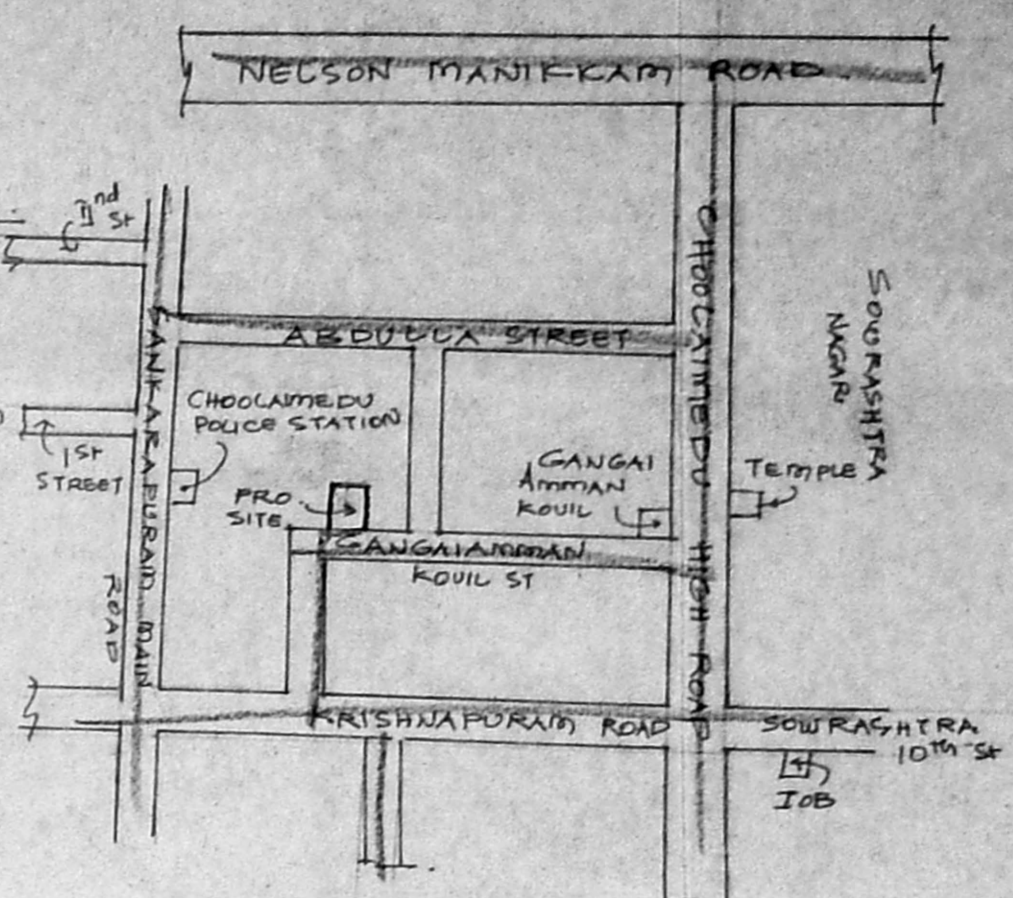 NELSON MANIKKAM ROAD
IInd
St
CHOOLAIMEDU HIGH ROAD
SOWRASHTRA
NAGAR
ABDULLA STREET
SANKARAPURAM MAIN
ROAD
CHOOLAIMEDU
POLICE STATION
1st
STREET
PRO
SITE
GANGAI
AMMAN
KOUIL
TEMPLE
GANGAIAMMAN
KOUIL ST
KRISHNAPURAM ROAD
SOWRASHTRA
10th St
IOB